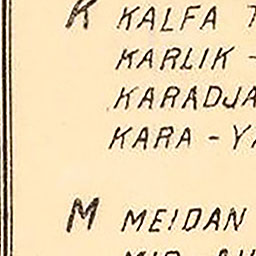 K KALFA
KARLIK -
KARADJA
KARA - Y
M MEIDAN